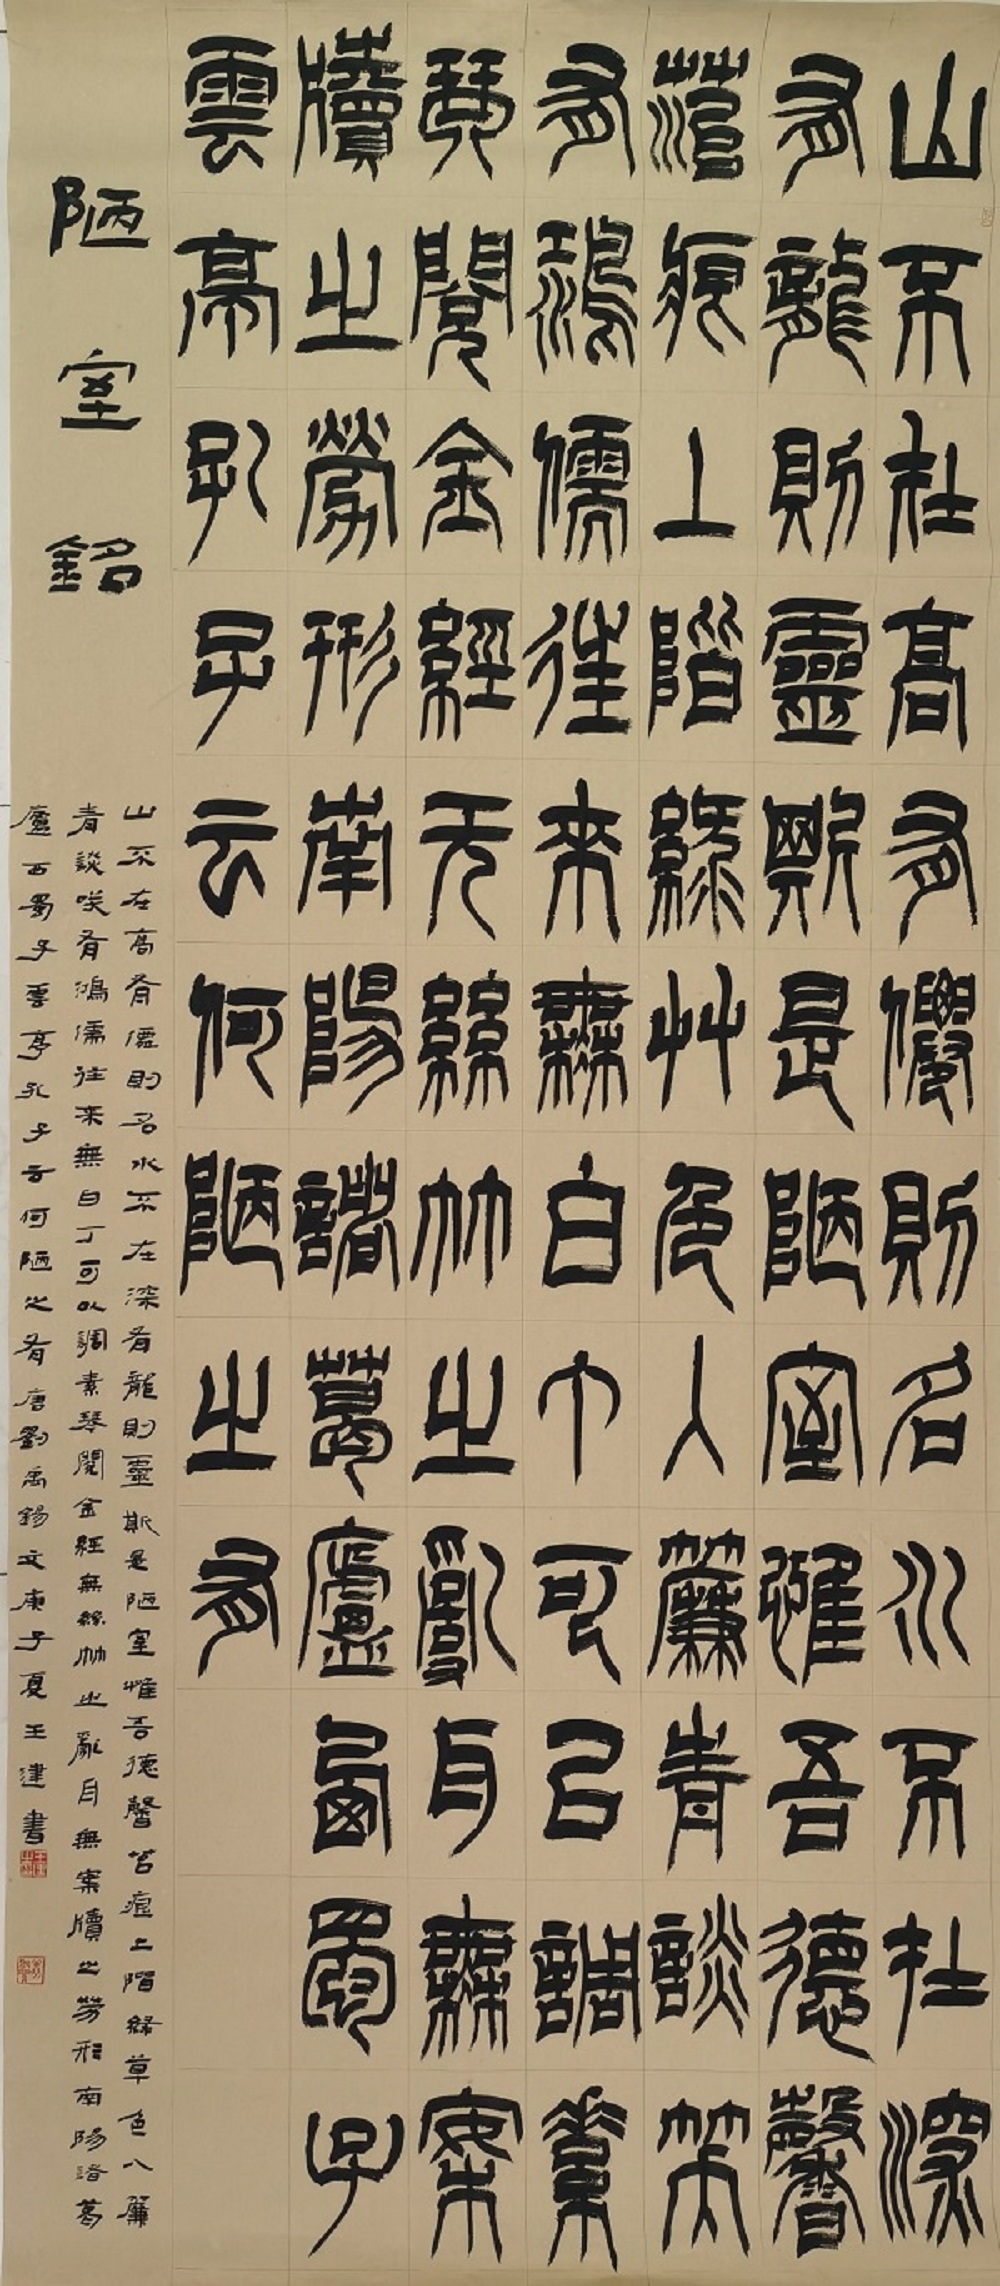 山不在高有僊則名水不在深
有龍則靈斯是陋室惟吾德馨
菭痕上階綠艸色入簾青談笑
有鴻儒往來無白丁可㠯調素
琴閱金經无絲竹之亂耳無案
牘之勞形南陽諸葛廬西蜀子
雲亭孔子云何陋之有
陋室銘
山不在高有僊則名水不在深有龍則靈斯是陋室惟吾德馨苔痕上階綠草色入簾
青談咲有鴻儒往來無白丁可以調素琴閱金經無絲竹之亂耳無案牘之勞形南陽諸葛
廬西蜀子雲亭孔子云何陋之有唐劉禹錫文庚子夏王建書